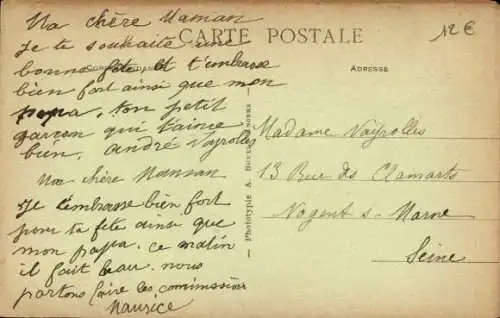 Ma chère Maman
Je te souhaite une
bonne fête et t'embrasse
bien fort ainsi que mon
papa. ton petit
garçon qui t'aime
bien. André Vayrolles
Ma chère Maman
Je t'embrasse bien fort
pour ta fête ainsi que
mon papa. ce matin
il fait beau. nous
partons faire les commissions
Maurice
CARTE POSTALE
12 €
ADRESSE
Phototypie A.
Madame Vayrolles
13 Rue des Clamarts
Nogent s. Marne
Seine